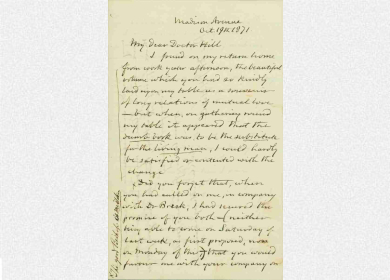 Madison Avenue
Oct 19th 1871
My dear Doctor Hill
I found on my return home
from work yester afternoon, the beautiful
volume which you had so kindly
laid upon my table as a souvenir
of long relations of mutual love
—but when, on gathering round
my table it appeared that the
dumb book was to be the substitute
for the living man, I would hardly
be satisfied or contented with the
change
Did you forget that, when
you had called on me, in company
with Dr I had secured the
promise of you both (neither
being able to come on Saturday of
last week, as first proposed, nor
on Monday of this) that you would
favour me with your company on